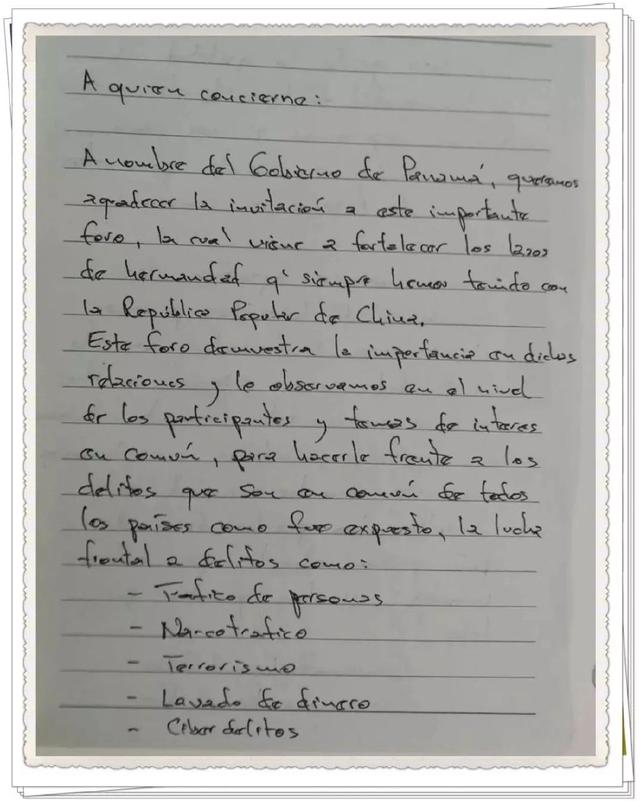 A quien concierne:
A nombre del Gobierno de Panamá, queremos
agradecer la invitación a este importante
foro, la cual viene a fortalecer los lazos
de hermandad q' siempre hemos tenido con
la República Popular de China.
Este foro demuestra la importancia en dichas
relaciones y lo observamos en el nivel
de los participantes y temas de interes
en común, para hacerle frente a los
delitos que son en común de todos
los países como fue expuesto, la lucha
frontal a delitos como:
- Trafico de personas
- Narcotrafico
- Terrorismo
- Lavado de dinero
- Ciber delitos